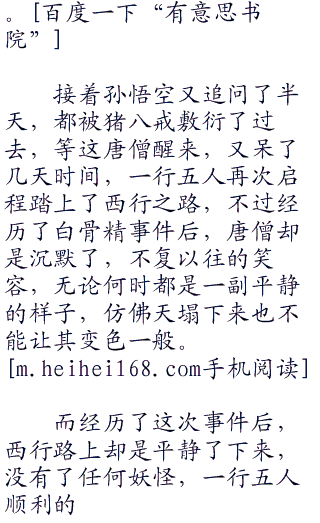 。[百度一下“有意思书
院”]
接着孙悟空又追问了半
天，都被猪八戒敷衍了过
去，等这唐僧醒来，又呆了
几天时间，一行五人再次启
程踏上了西行之路，不过经
历了白骨精事件后，唐僧却
是沉默了，不复以往的笑
容，无论何时都是一副平静
的样子，仿佛天塌下来也不
能让其变色一般。
[m.heihei168.com手机阅读]
而经历了这次事件后，
西行路上却是平静了下来，
没有了任何妖怪，一行五人
顺利的